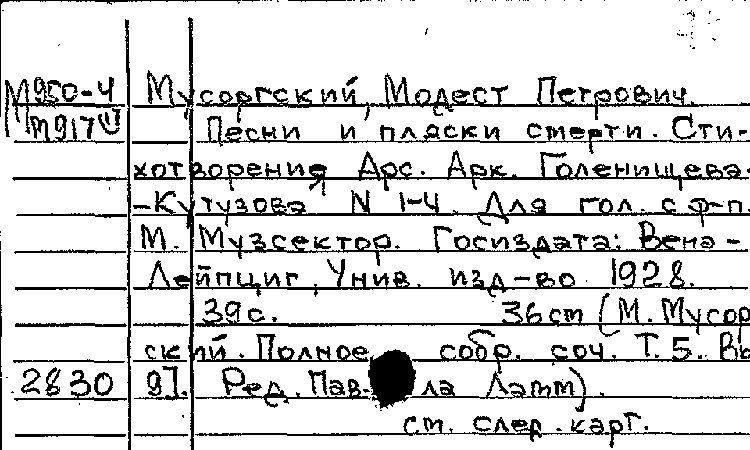 М950-4 Мусоргский, Модест Петрович.
М917 Песни и пляски смерти. Сти-
хотворения Арс. Арк. Голенищева-
-Кутузова N 1-4. Для гол. с ф-п.
М. Музсектор. Госиздата: Вена-
Лейпциг, Унив. изд-во 1928.
39с. 36cm (М. Мусор
ский. Полное собр. соч. Т. 5. Вы
2830 9]. Ред. Пав- ла Ламм).
см. след. карт.